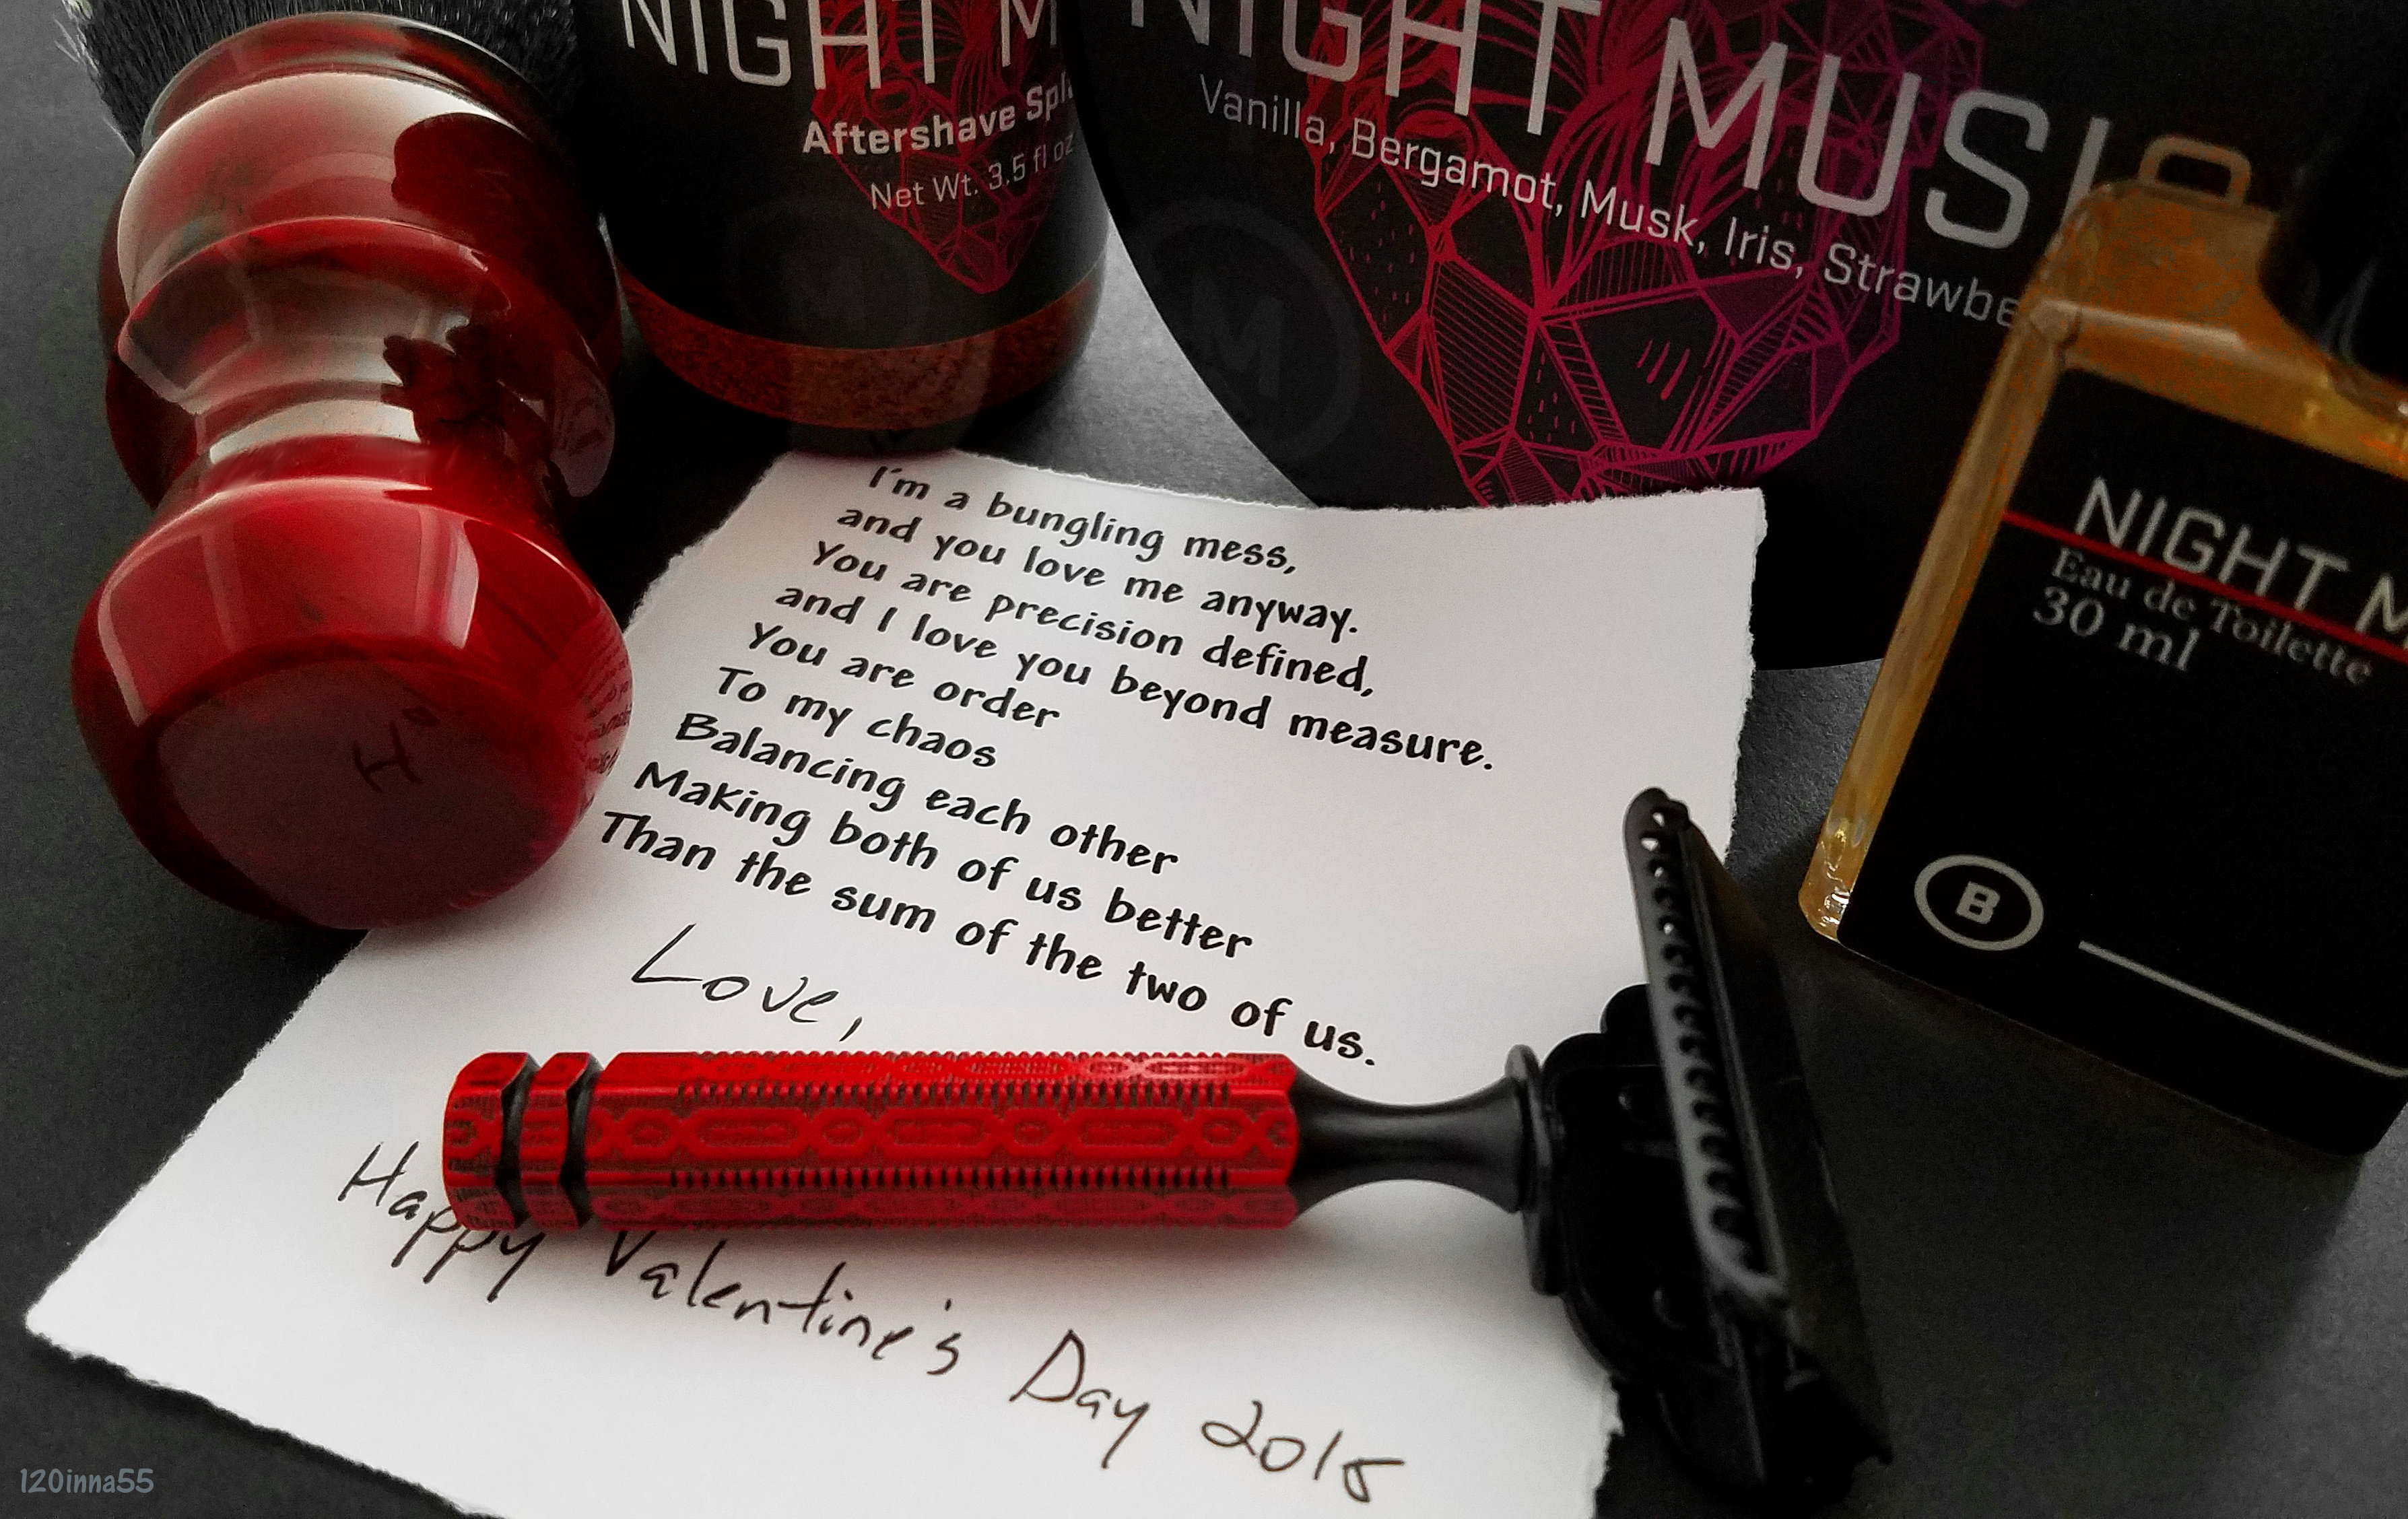 NIGHT M
Aftershave Spl
Net Wt. 3.5 fl oz
NIGHT MUSIC
Vanilla, Bergamot, Musk, Iris, Strawbe
M
M
NIGHT M
Eau de Toilette
30 ml
B
I'm a bungling mess,
and you love me anyway.
You are precision defined,
and I love you beyond measure.
You are order
To my chaos
Balancing each other
Making both of us better
Than the sum of the two of us.
Love,
Happy Valentine's Day 2018
120inna55